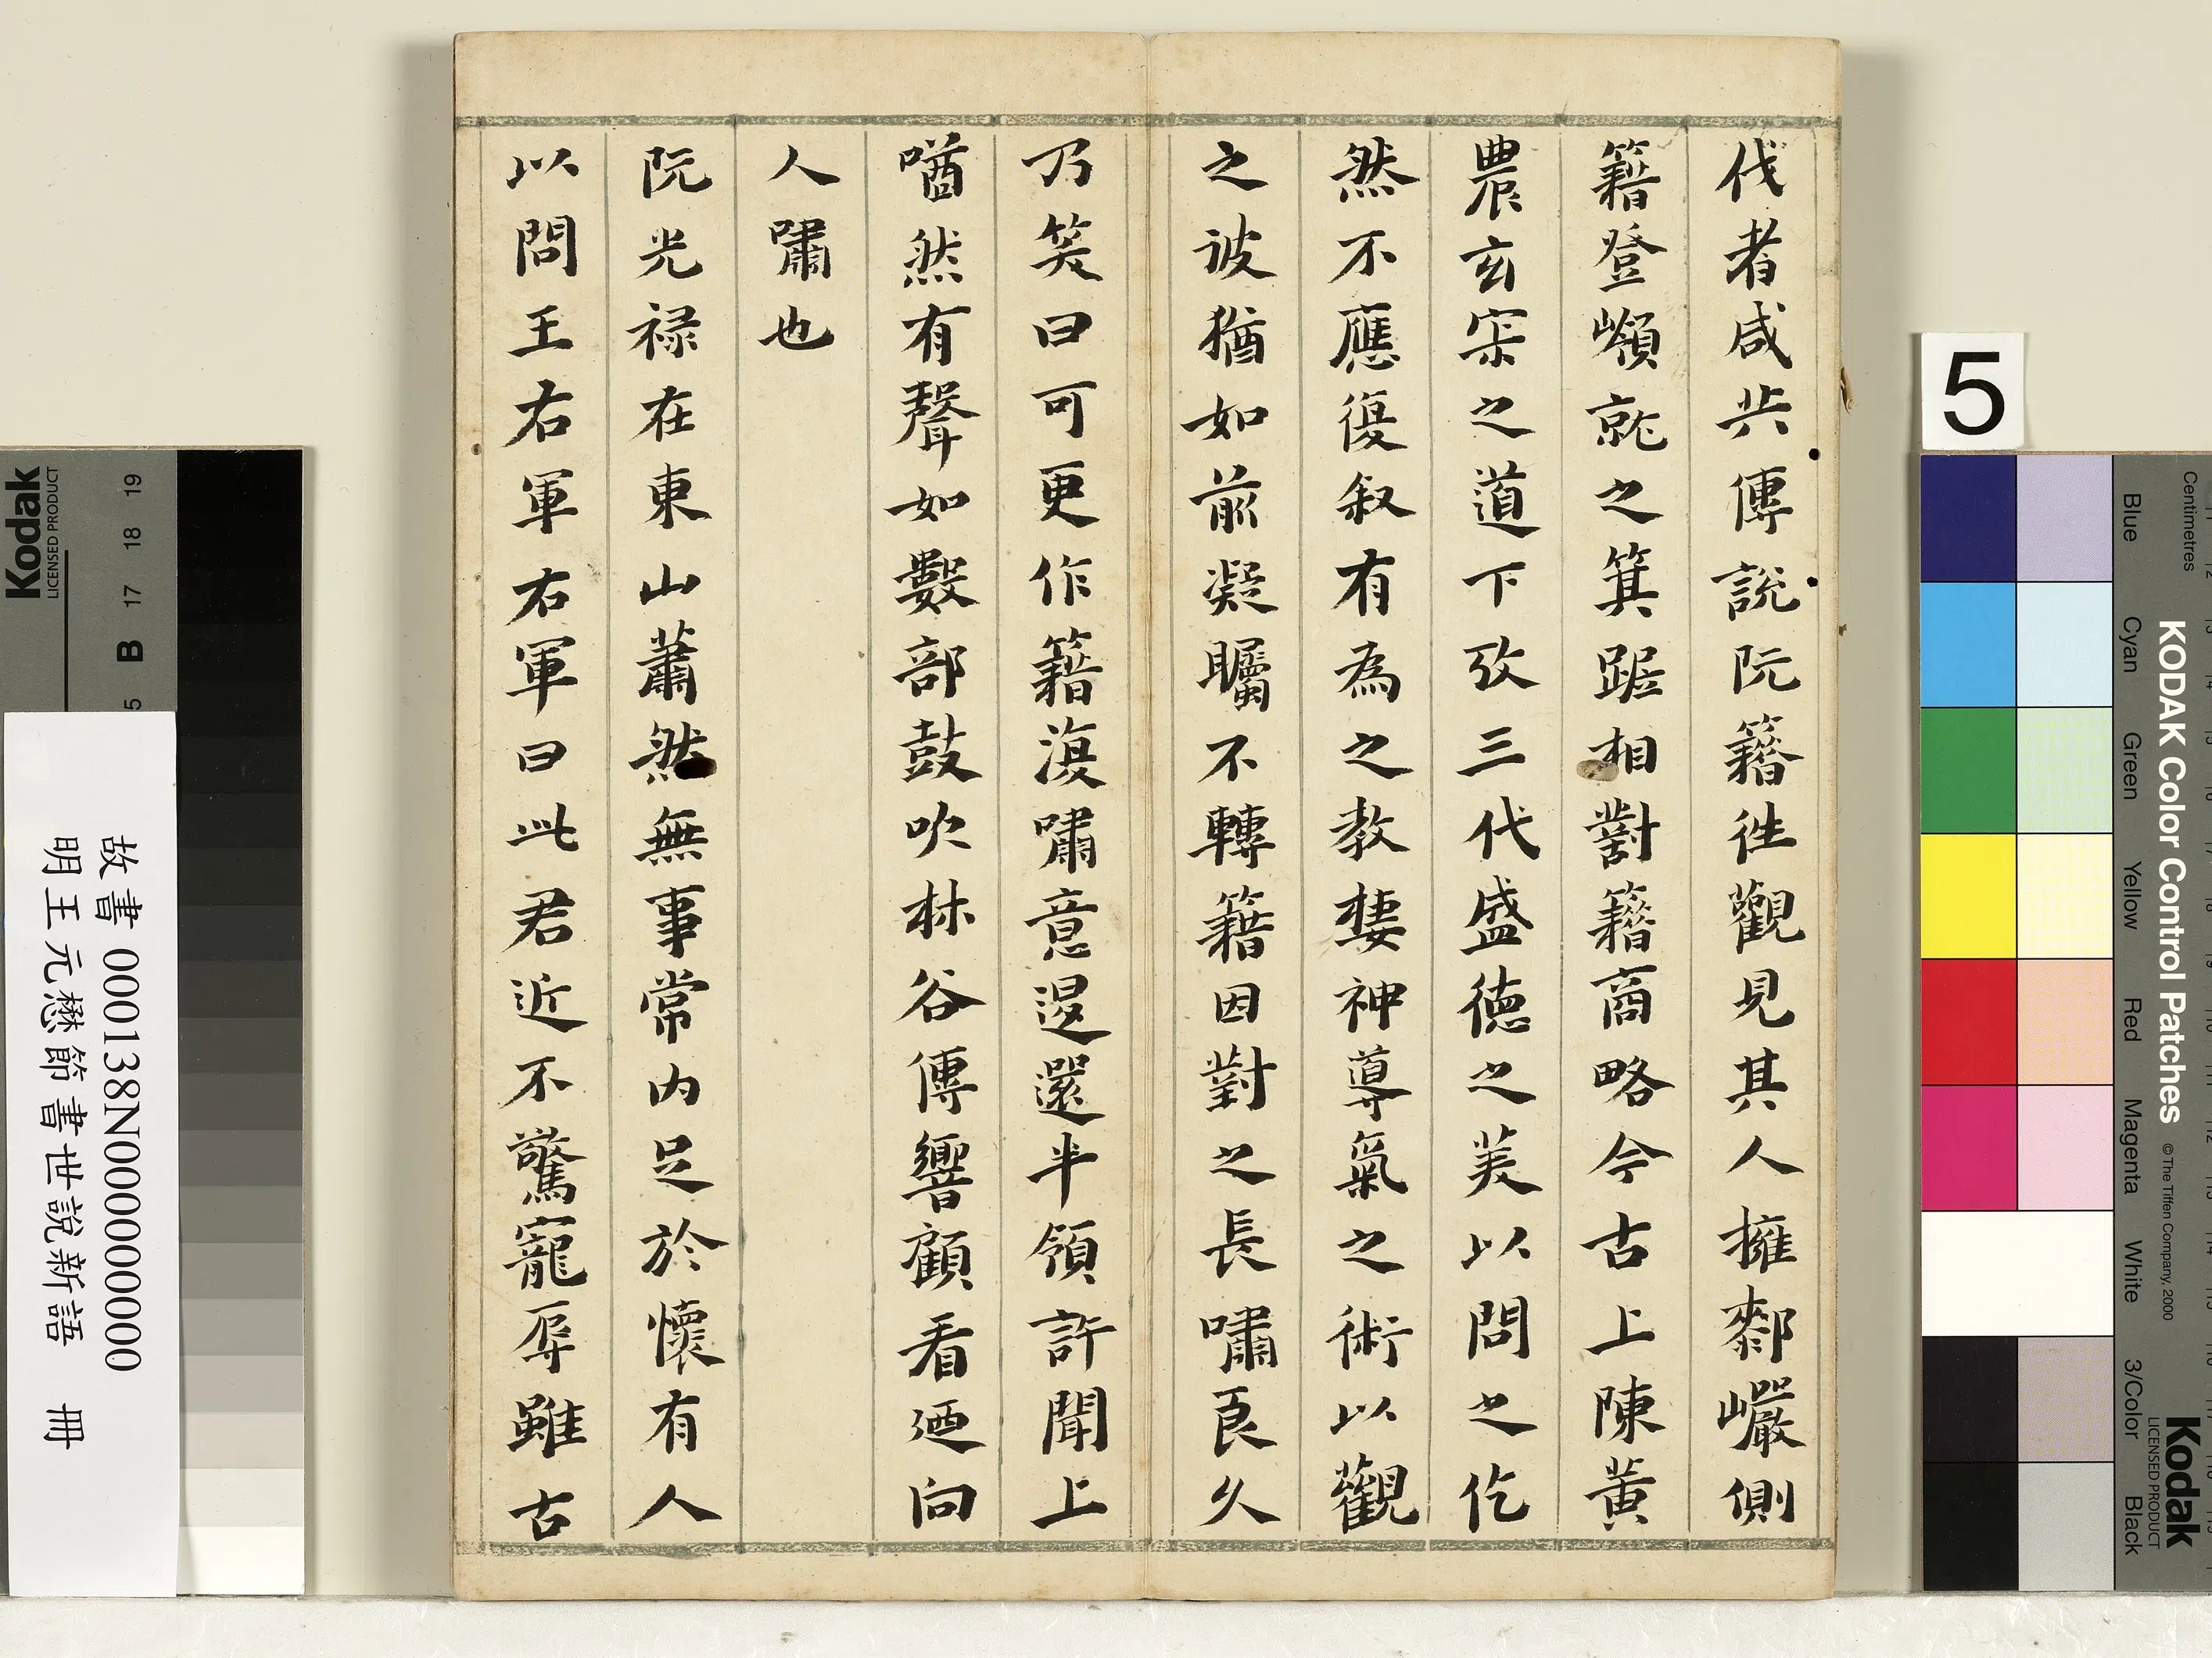 伐者咸共傳說阮籍徃觀見其人擁厀巖側
籍登嶺就之箕踞相對籍商略今古上陳黃
農玄宗之道下攷三代盛德之美以問之仡
然不應復叙有為之教棲神導氣之術以觀
之彼猶如前凝矚不轉籍因對之長嘯良久
乃笑曰可更作籍復嘯意退還半領許聞上
㗜然有聲如數部鼓吹林谷傳響顧看廼向
人嘯也
阮光祿在東山蕭然無事常內足於懷有人
以問王右軍右軍曰此君近不驚寵辱雖古
5
Kodak
LICENSED PRODUCT
B 17 18 19
故書 000138N000000000
明王元懋節書世說新語 冊
Centimetres
Blue Cyan Green Yellow Red Magenta White 3/Color Black
KODAK Color Control Patches
© The Tiffen Company, 2000
Kodak
LICENSED PRODUCT